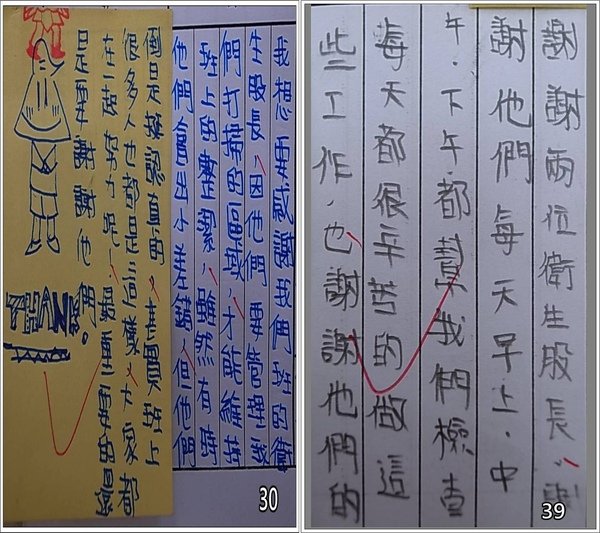 我想要感謝我們班的衛
生股長,因他們要管理我
們打掃的區域,才能維持
班上的整潔,雖然有時
他們會出小差錯,但他們
倒是挺認真的,其實班上
很多人也都是這樣,大家都
在一起努力呢!最重要的還
是要謝謝他們。
THANK!
30
謝謝兩位衛生股長,謝
謝他們每天早上、中
午、下午都幫我們檢查
每天都很辛苦的做這
些工作,也謝謝他們的
39